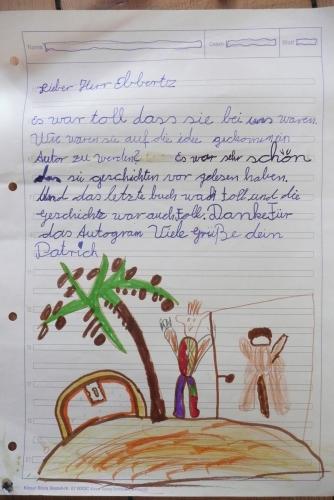 Name Datum Blatt
Lieber Herr Ebbertz
es war toll dass sie bei uns waren.
Wie waren sie auf die idee gekommen ein
Autor zu werden? Es war sehr schön
das sie geschichten vor gelesen haben.
Und das letzte buch wah toll und die
geschichte war auch toll. Danke für
das Autogram Viele Grüße dein
Patrick